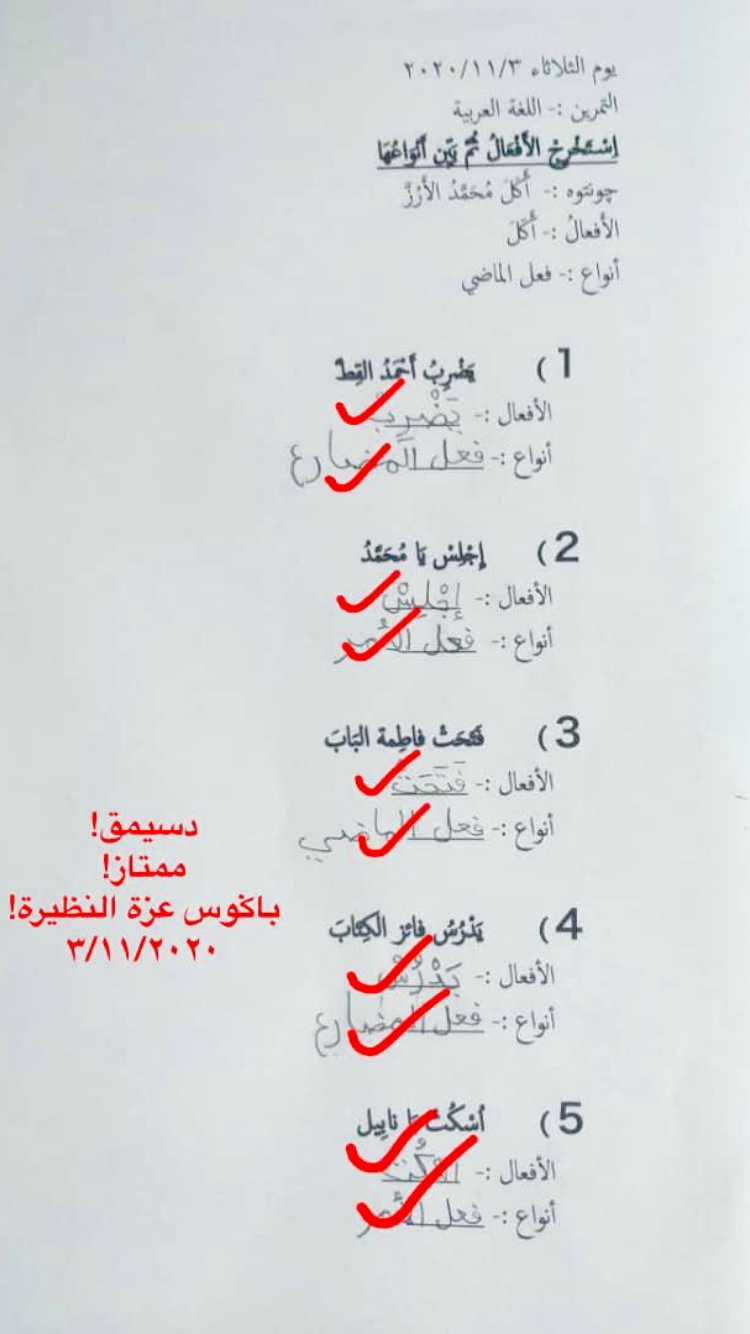 يوم الثلاثاء ٢٠٢٠/١١/٣
التمرين :- اللغة العربية
إِسْتَخْرِجْ الأَفْعَالُ ثُمَّ بَيِّن أَنْوَاعُهَا
چونتوه :- أَكَلَ مُحَمَّدُ الأَرُزَّ
الأفعالُ :- أَكَلَ
أنواع :- فعل الماضي
1) يَضْرِبُ أَحْمَدُ القِطَّ
الأفعال :- يَضْرِبُ
أنواع :- فعل المضارع
2) إِجْلِسْ يَا مُحَمَّدُ
الأفعال :- إِجْلِسْ
أنواع :- فعل الأمر
3) فَتَحَتْ فاطِمة البَابَ
الأفعال :- فَتَحَتْ
أنواع :- فعل الماضي
دسيمق!
ممتاز!
باݢوس عزة النظيرة!
٣/١١/٢٠٢٠
4) يَدْرُسُ فائز الكِتَابَ
الأفعال :- يَدْرُسُ
أنواع :- فعل المضارع
5) أُسْكُتْ يَا نابِيل
الأفعال :- اسْكُتْ
أنواع :- فعل الأمر